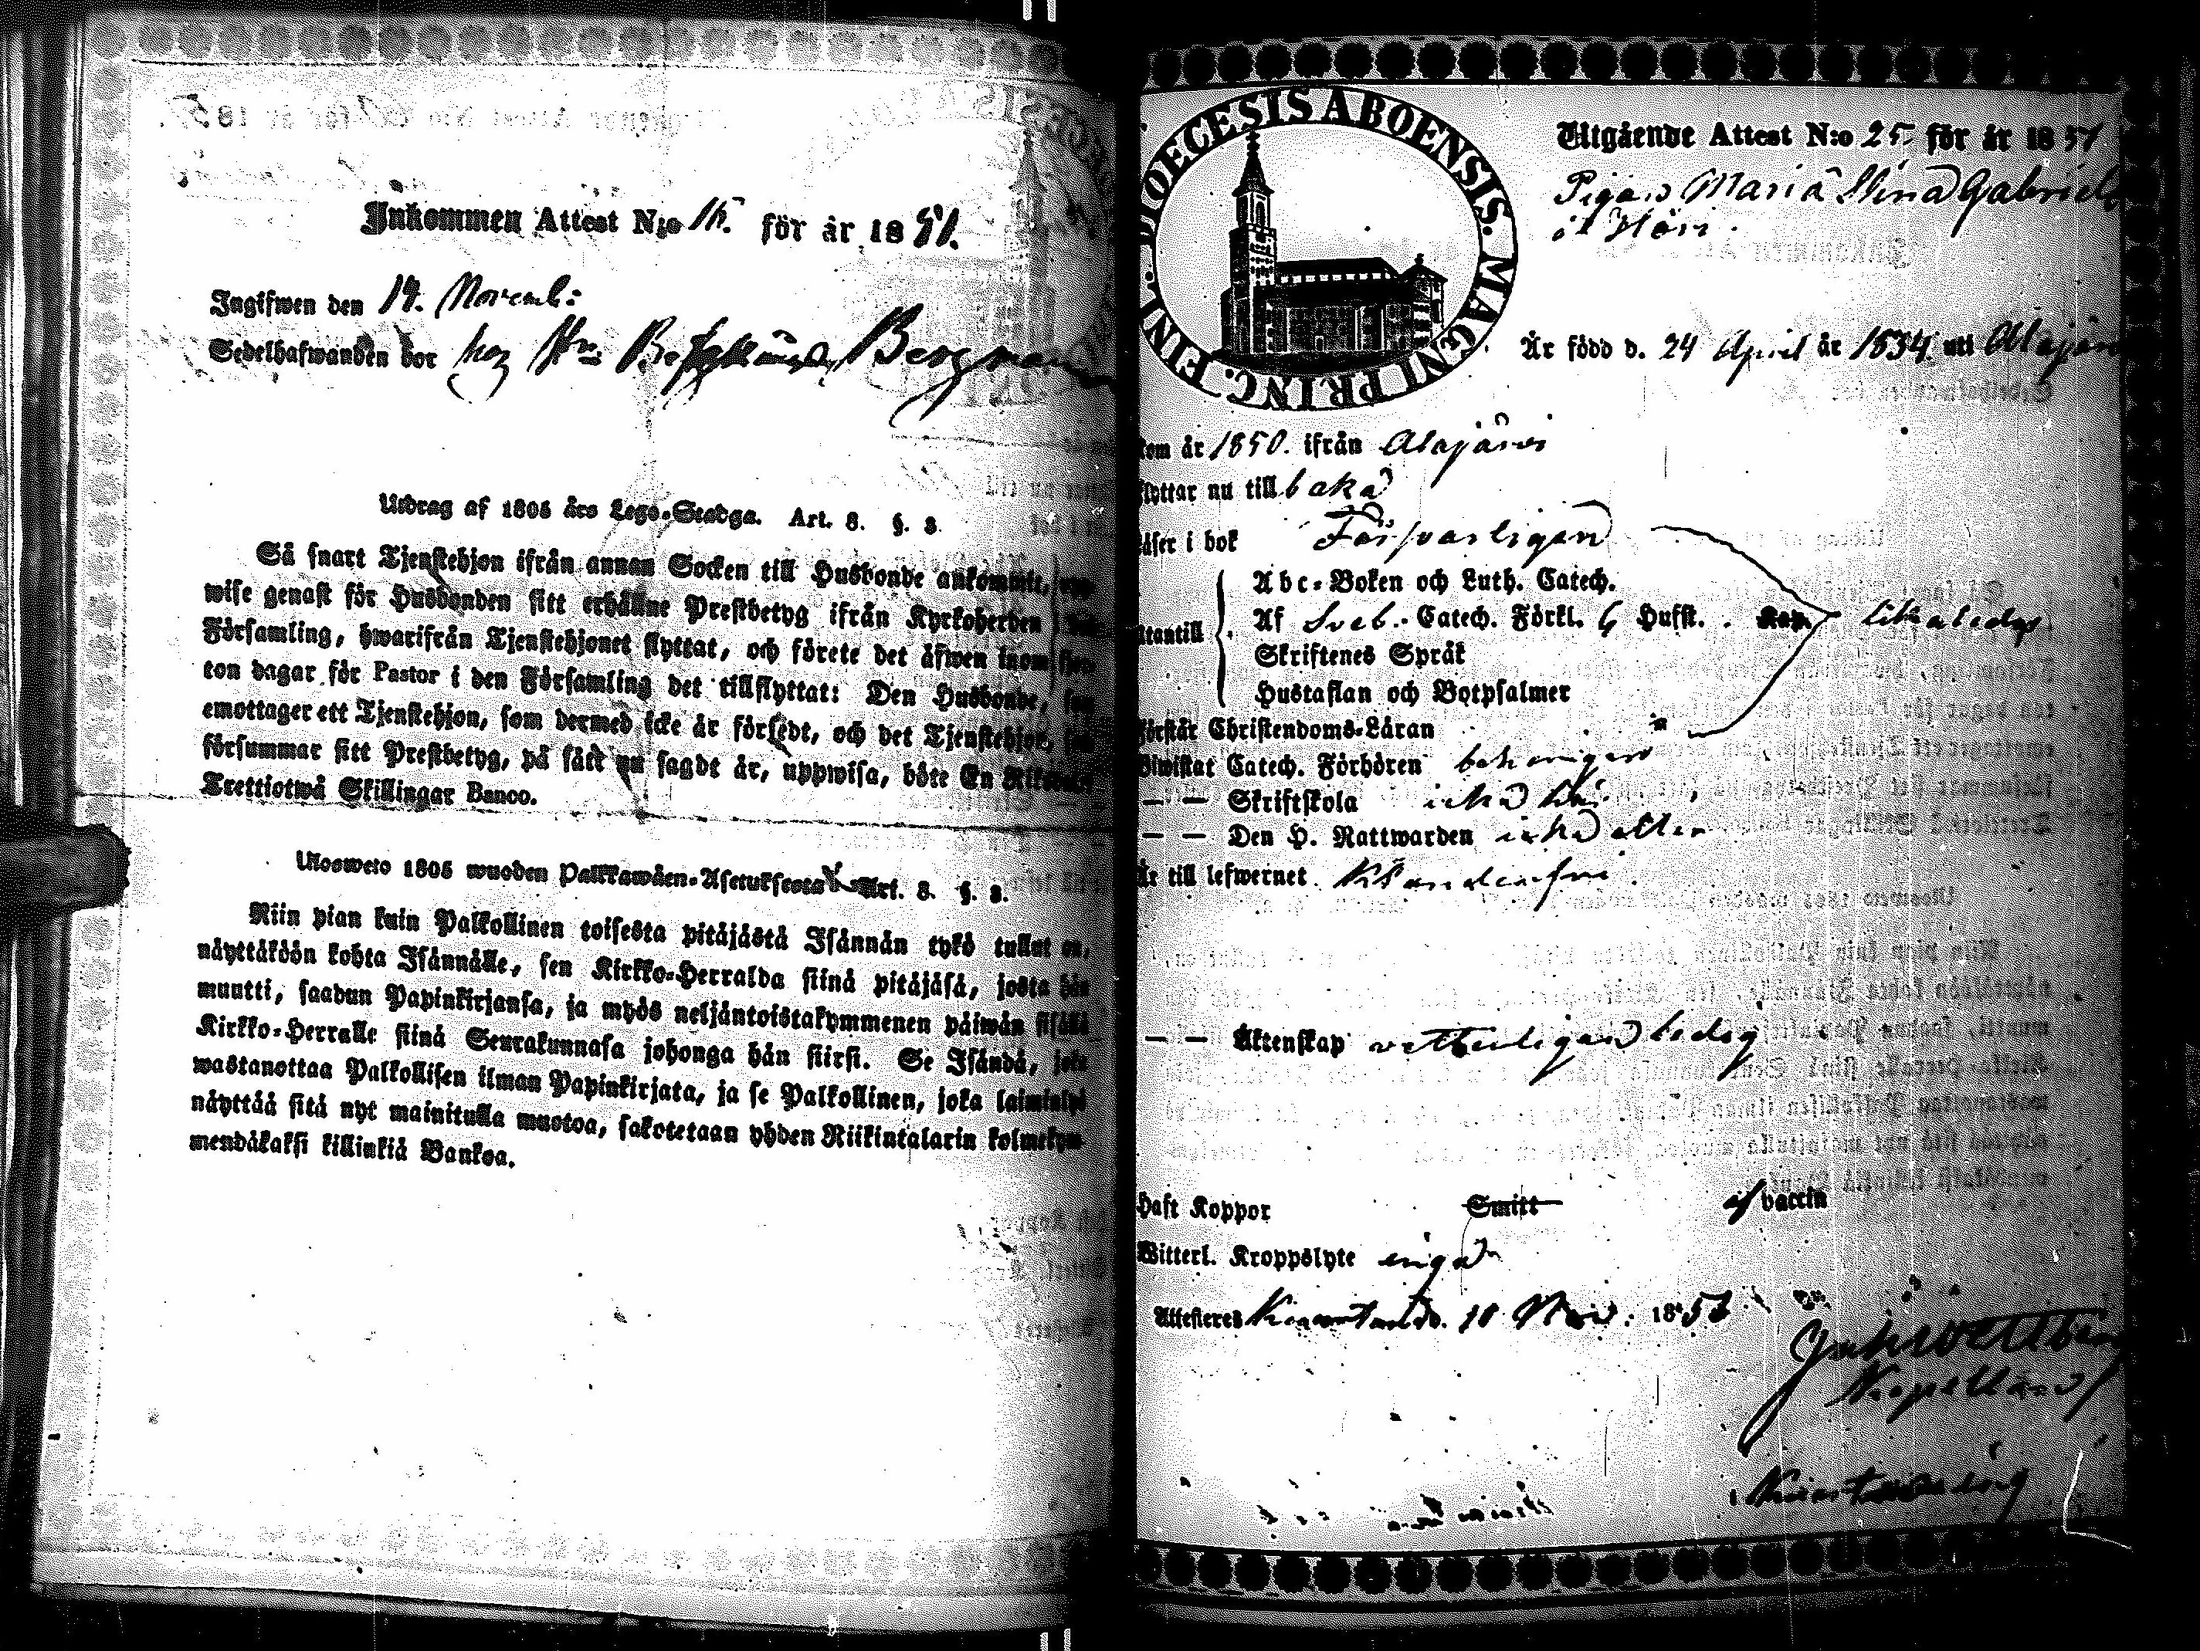 Inkommen Attest N:o 15. för år 1851.
Ingifwen den 14. Novemb:
Sedelhafwanden bor hos Hr Bergman
Utdrag af 1805 års Lego-Stadga. Art. 8. §. 3.
Så snart Tjenstehjon ifrån annan Socken till Husbonde ankommit,
wise genast för Husbonden sitt erhållne Prestbetyg ifrån Kyrkoherden
Församling, hwarifrån Tjenstehjonet flyttat, och förete det äfwen inom
ton dagar för Pastor i den Församling det tillflyttat: Den Husbonde,
emottager ett Tjenstehjon, som dermed icke är försedt, och det Tjenstehjon,
försummar sitt Prestbetyg, på sätt nu sagdt är, uppwisa, böte En
Trettiotwå Skillingar Banco.
Ulosweto 1805 wuoden Palkkawäen-Asetuksesta Art. 8. §. 3.
Niin pian kuin Palkollinen toisesta pitäjästä Isännän tykö tullut on,
näyttäköön kohta Isännälle, sen Kirkko-Herralda siinä pitäjäsä, josta hän
muutti, saadun Papinkirjansa, ja myös neljäntoistakymmenen päiwän sisällä
Kirkko-Herralle siinä Seurakunnasa johonga hän siirsi. Se Isändä, joka
wastanottaa Palkollisen ilman Papinkirjata, ja se Palkollinen, joka laiminlyö
näyttää sitä nyt mainitulla muotoa, sakotetaan yhden Riikintalarin kolmekym-
mendäkaksi killinkiä Bankoa.
DIOECESIS ABOENSIS. MAGNI PRINC. FINL.
Utgående Attest N:o 25. för år 1851
Pigan Maria Stina Gabriels
Är född d. 24 April år 1834. uti Alajärvi
kom år 1850. ifrån Alajärvi
flyttar nu till baka
läser i bok Försvarligen
Abc-Boken och Luth. Catech.
utantill Af Sveb. Catech. Förkl. 6 Hufst. Kap. likaledes
Skriftenes Språk
Hustaflan och Botpsalmer
Förstår Christendoms-Läran
Biwistat Catech. Förhören behörigen
— — Skriftskola icke här
— — Den H. Nattwarden icke eller
Är till lefwernet Klanderfri
— — Äktenskap vetterligen ledig
Haft Koppor Smitt af vaccin
Witterl. Kroppslyte inga
Attesteres 11 Nov. 1851
Kapellan